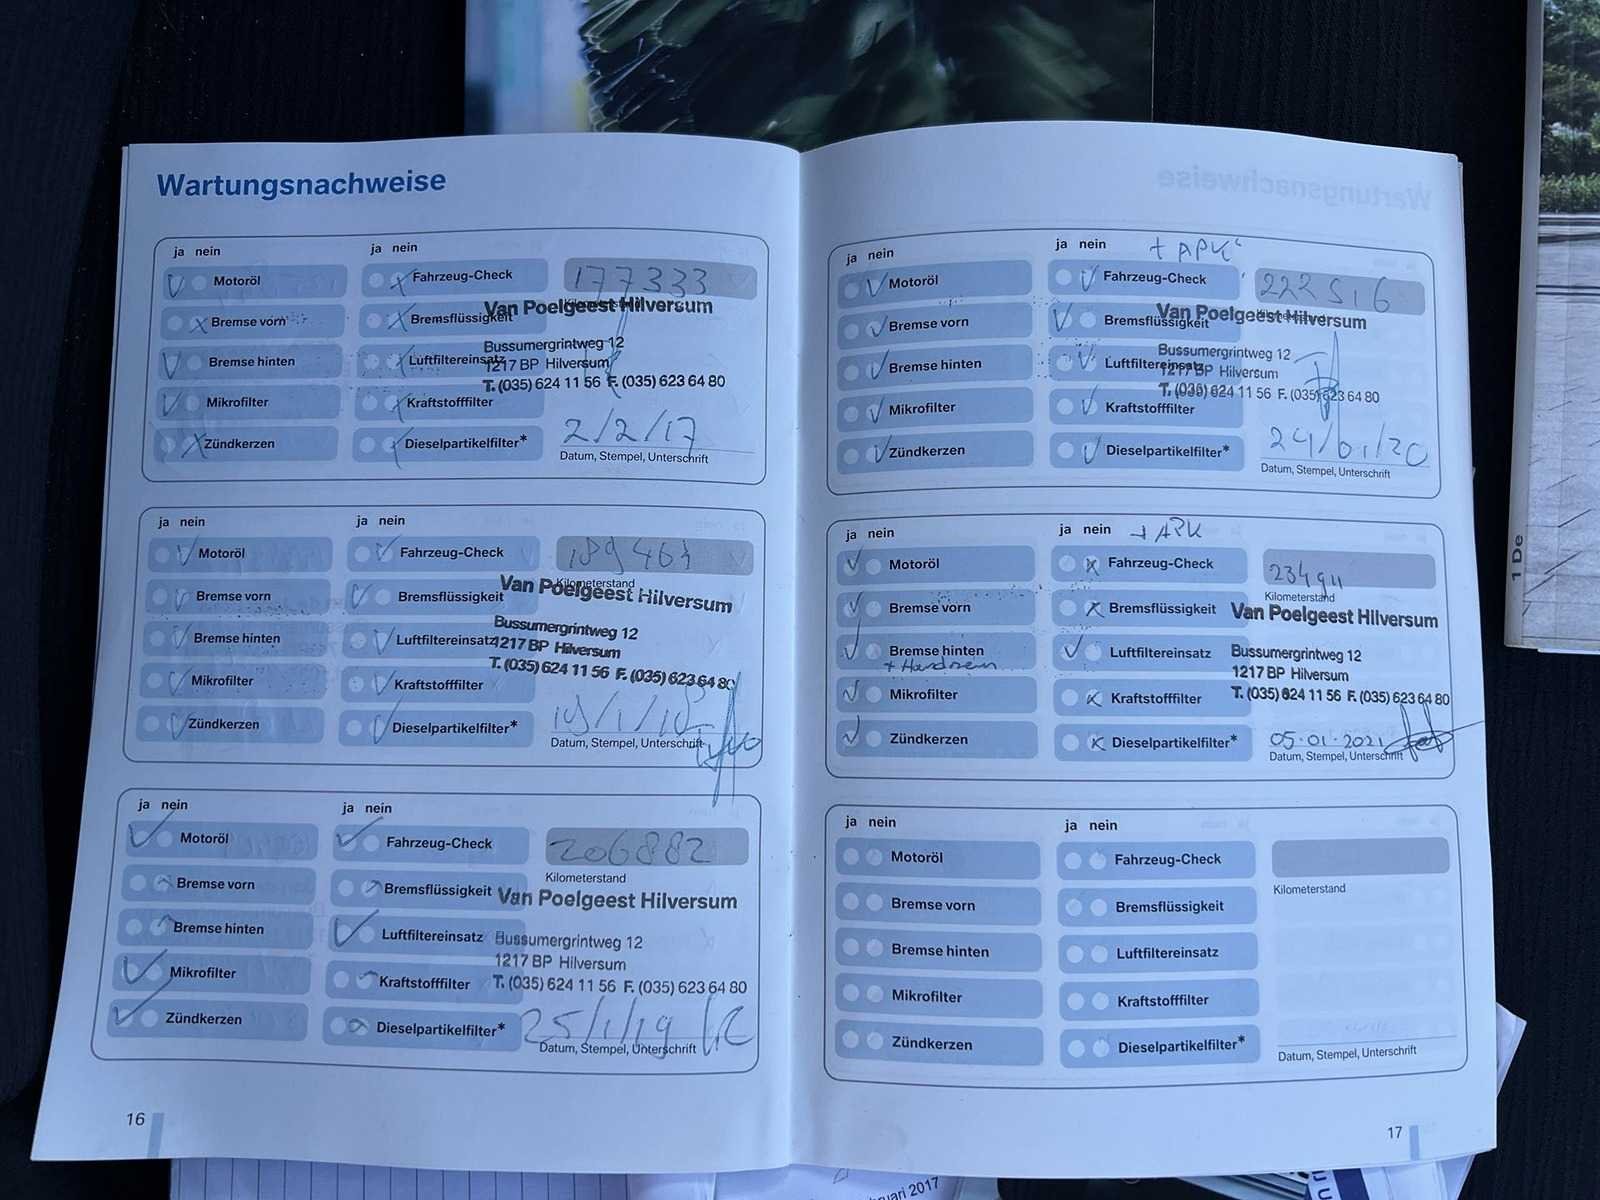 Wartungsnachweise
ja nein
ja nein
Motoröl
Fahrzeug-Check
177333
Kilometerstand
Bremse vorn
Bremsflüssigkeit
Van Poelgeest Hilversum
Bremse hinten
Luftfiltereinsatz
Bussumergrintweg 12
1217 BP Hilversum
T. (035) 624 11 56 F. (035) 623 64 80
Mikrofilter
Kraftstofffilter
Zündkerzen
Dieselpartikelfilter*
2/2/17
Datum, Stempel, Unterschrift
ja nein
ja nein
Motoröl
Fahrzeug-Check
Kilometerstand
Bremse vorn
Bremsflüssigkeit
Van Poelgeest Hilversum
Bremse hinten
Luftfiltereinsatz
Bussumergrintweg 12
1217 BP Hilversum
T. (035) 624 11 56 F. (035) 623 64 80
Mikrofilter
Kraftstofffilter
Zündkerzen
Dieselpartikelfilter*
Datum, Stempel, Unterschrift
ja nein
ja nein
Motoröl
Fahrzeug-Check
206882
Kilometerstand
Bremse vorn
Bremsflüssigkeit
Van Poelgeest Hilversum
Bremse hinten
Luftfiltereinsatz
Bussumergrintweg 12
1217 BP Hilversum
T. (035) 624 11 56 F. (035) 623 64 80
Mikrofilter
Kraftstofffilter
Zündkerzen
Dieselpartikelfilter*
25/1/19
Datum, Stempel, Unterschrift
16
ja nein
ja nein
+ APK
Motoröl
Fahrzeug-Check
222516
Bremse vorn
Bremsflüssigkeit
Van Poelgeest Hilversum
Bremse hinten
Luftfiltereinsatz
Bussumergrintweg 12
1217 BP Hilversum
T. (035) 624 11 56 F. (035) 623 64 80
Mikrofilter
Kraftstofffilter
Zündkerzen
Dieselpartikelfilter*
24/01/20
Datum, Stempel, Unterschrift
ja nein
ja nein
+ APK
Motoröl
Fahrzeug-Check
234911
Kilometerstand
Bremse vorn
Bremsflüssigkeit
Van Poelgeest Hilversum
Bremse hinten
+ Handrem
Luftfiltereinsatz
Bussumergrintweg 12
1217 BP Hilversum
T. (035) 624 11 56 F. (035) 623 64 80
Mikrofilter
Kraftstofffilter
Zündkerzen
Dieselpartikelfilter*
05-01-2021
Datum, Stempel, Unterschrift
ja nein
ja nein
Motoröl
Fahrzeug-Check
Kilometerstand
Bremse vorn
Bremsflüssigkeit
Bremse hinten
Luftfiltereinsatz
Mikrofilter
Kraftstofffilter
Zündkerzen
Dieselpartikelfilter*
Datum, Stempel, Unterschrift
17
1 De
2017